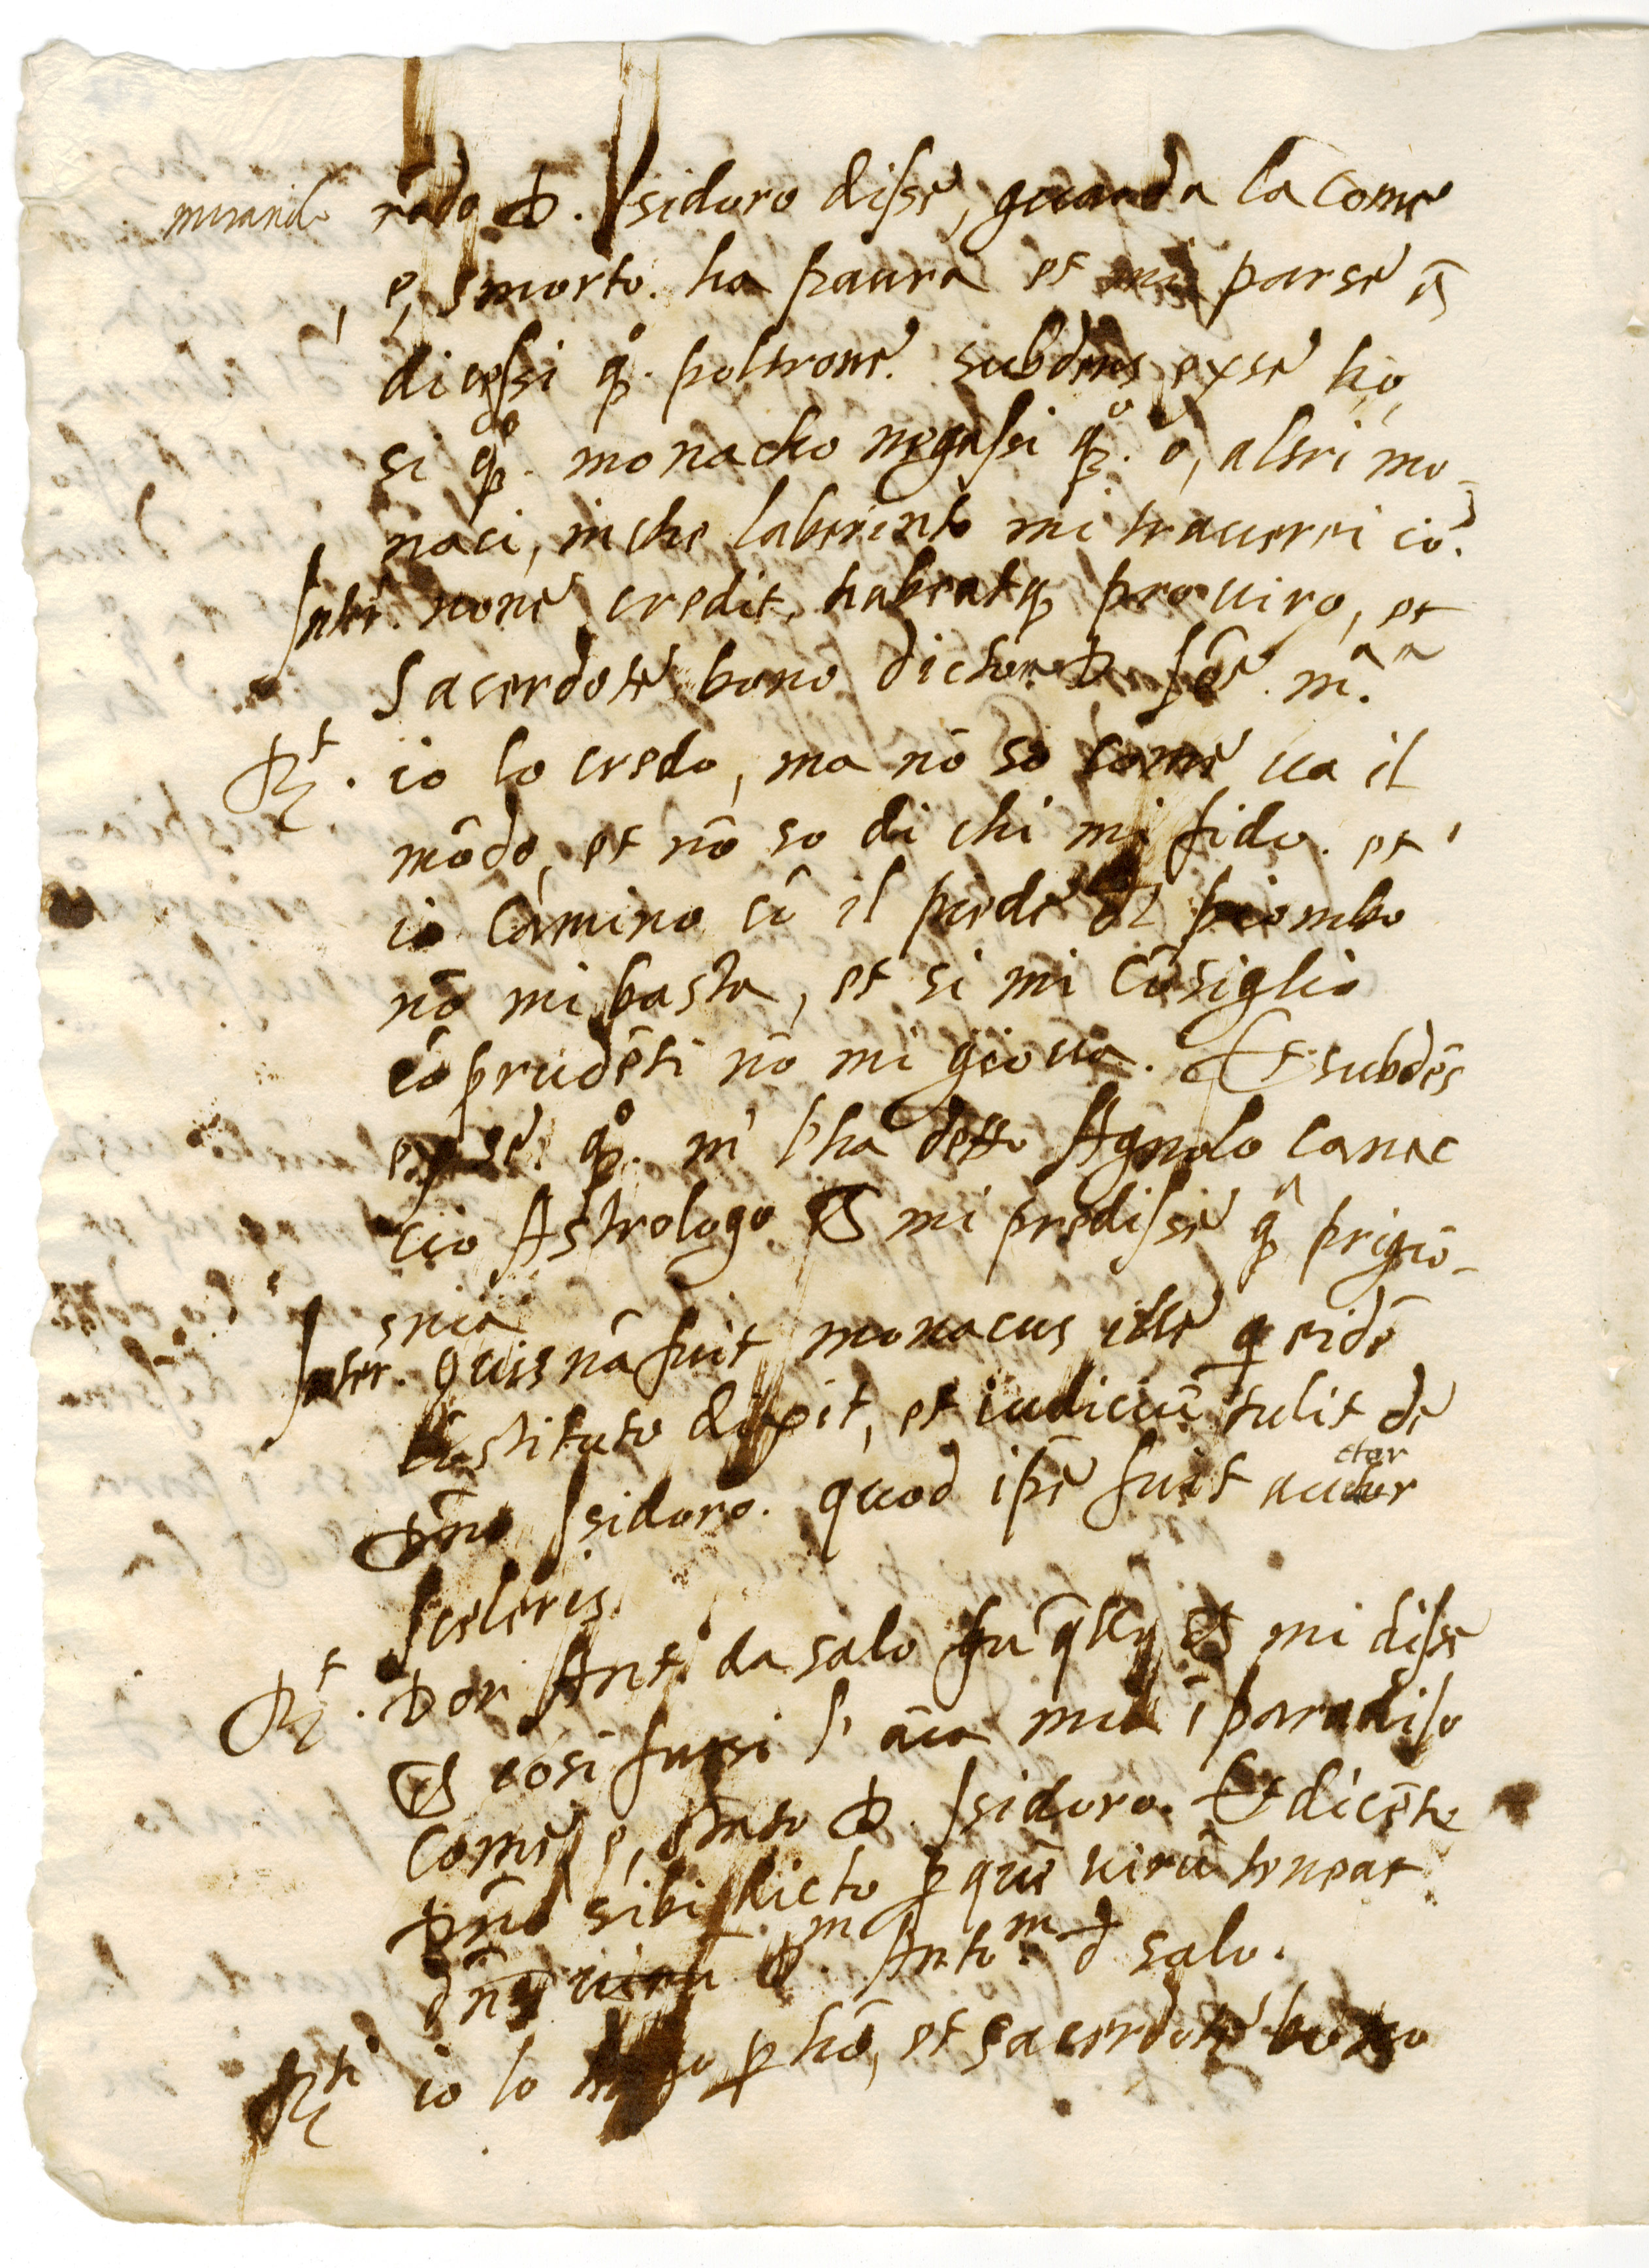 mirando rādo D. Isidoro disse, guarda la come
è, smorto. ha paura et mi parse ch
dicessi qᵒ. poltrone. subdens ex se hō,
si qᵒ. monacho negassi qᵒ. ò, altri mo-
naci, in che laberinto mi trauerei iò.
Inter. none credit, habeatq pro uiro, et
sacerdote bono dictum D
Rᵗ. io lo credo, ma nō so come ua il
mōdo, et nō so di chi mi fido. et
io camino cō il piede di piombo
nō mi basta, et si mi cōsiglio
cō prudēti nō mi gioua. Et subdēs
ex se. qᵒ. m' l'ha detto Agnolo canac
cio Astrologo ch mi predisse qᵃ prigiō-
snia
Inter. quisnā fuit monacus ille q eidē
cōstituto dixit, et iudiciū tulit de
Dn̄o Isidoro. quod ip̄e fuit auctor
ctor
sceleris.
Rᵗ. Don Antº da salo fu q̄llo ch mi disse
ch cosi fussi l' aīa mia ī paradiso
come è, stato D. Isidoro. Et dicēte
Dn̄o sibi dicto p quē uirū teneat
dn̄ uirū Dᵐ. Antoᵐ. d salo.
Rᵗⁱ io lo tengo p hō, et sacerdote bono